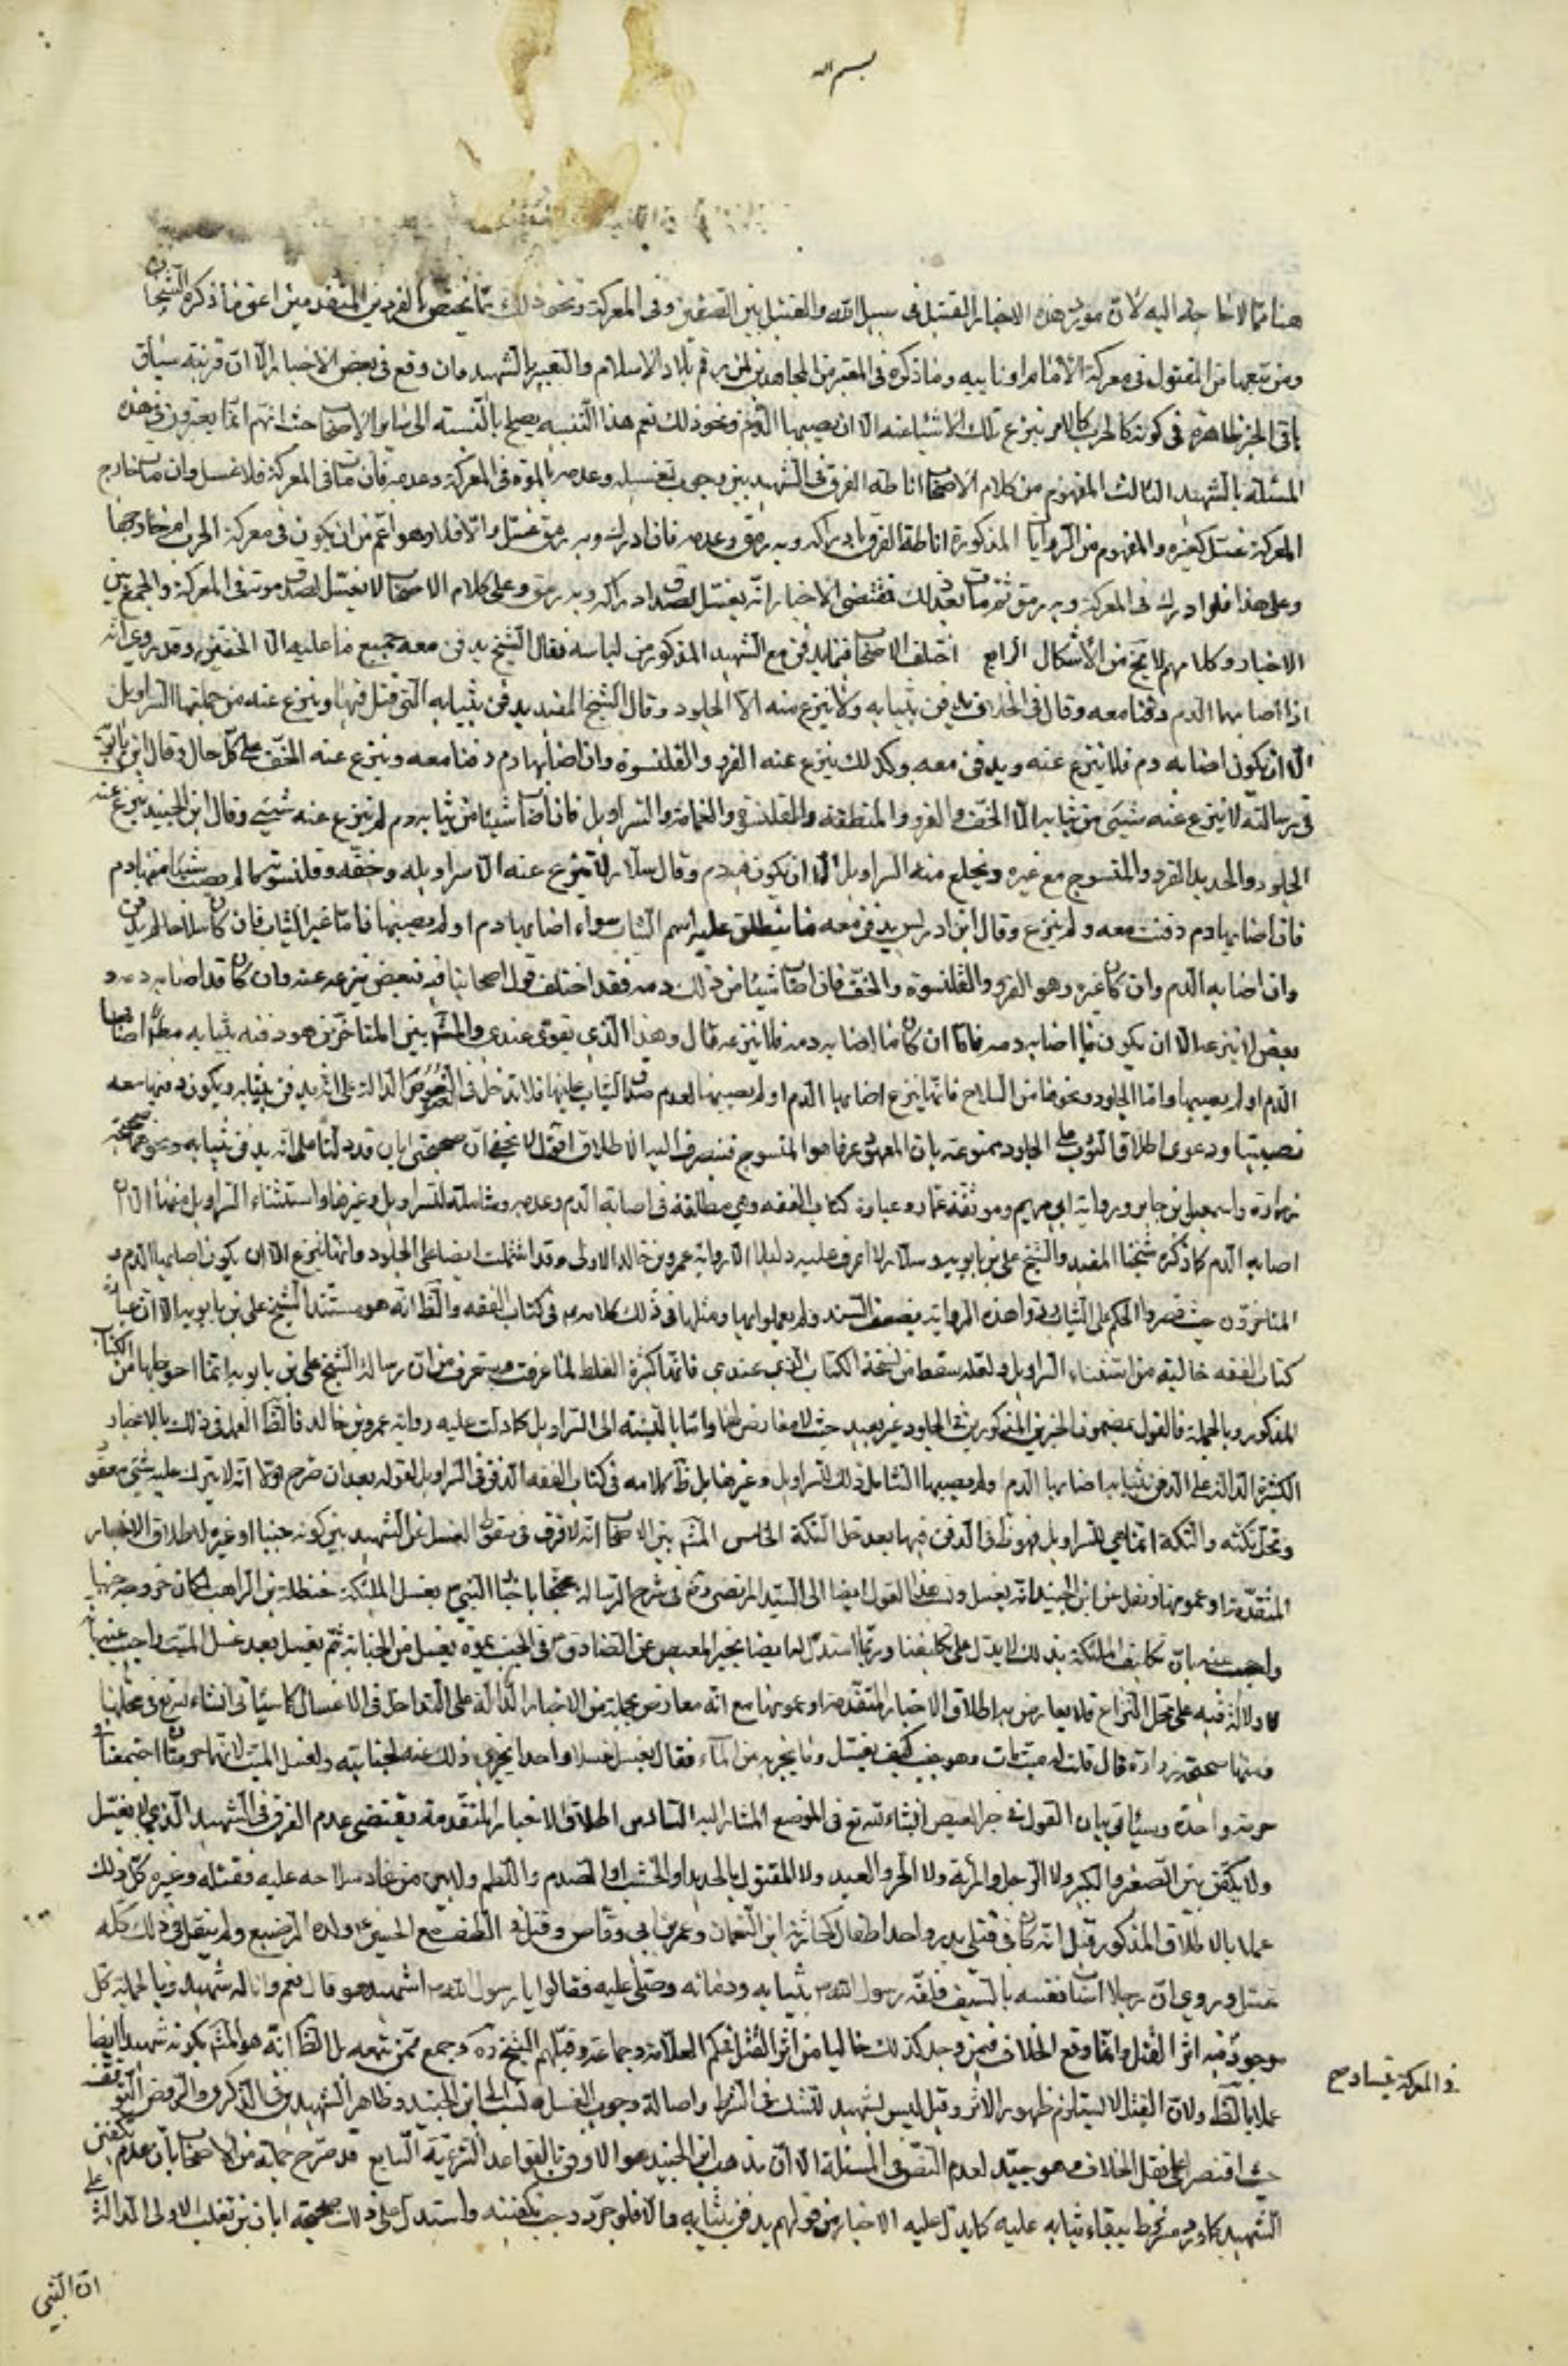 بسم الله
هنا مما لا حاجة اليه لان مورد هذه الاخبار القتيل فى سبيل الله والقتيل بين الصفين وفى المعركة ونحو ذلك مما يختص بالفردين المتقدمين اعنى ما ذكره الشيخان
ومن تبعهما من المقتول فى معركة الامام او نايبه وما ذكره فى المعتبر من المجاهدين لمن دهم بلاد الاسلام والتعبير بالشهيد وان وقع فى بعض الاخبار الا ان قرينة سياق
باقى الخبر ظاهرة فى كونه كالامر بنزع تلك الاشياء عنه الا ان يصيبها الدم ونحو ذلك نعم هذا التنبيه يصلح بالنسبة الى سائر الاصحاب حيث انهم انما يعبرون فى هذه
المسئلة بالشهيد الثالث المفهوم من كلام الاصحاب اناطة الفرق فى الشهيد بين وجوب تغسيله وعدمه بالموت فى المعركة وعدمه فان مات فى المعركة فلا غسل وان مات خارج
المعركة غسل كغيره والمفهوم من الروايات المذكورة اناطة الفرق بادراكه وبه رمق وعدمه فان ادرك وبه رمق غسل والا فلا وهو اعم من ان يكون فى معركة الحرب او خارجها
وعلى هذا فلو ادرك فى المعركة وبه رمق ثم مات بعد ذلك فمقتضى الاخبار انه يغسل لصدق ادراكه وبه رمق وعلى كلام الاصحاب لا يغسل لصدق موته فى المعركة والجمع بين
الاخبار وكلامهم لا يخ من الاشكال الرابع اختلف الاصحاب فيما يدفن مع الشهيد المذكور من لباسه فقال الشيخ يدفن معه جميع ما عليه الا الخفين وقد روى انه
اذا اصابهما الدم دفنا معه وقال فى الخلاف يدفن بثيابه ولا ينزع منه الا الجلود وقال الشيخ المفيد يدفن بثيابه التى قتل فيها وينزع عنه من جملتها السراويل
الا ان يكون اصابه دم فلا ينزع عنه ويدفن معه وكذلك ينزع عنه الفرو والقلنسوة وان اصابهما دم دفنا معه وينزع عنه الخف على كل حال وقال ابن بابويه
فى رسالته لا ينزع عنه شيئ من ثيابه الا الخف والفرو والمنطقة والقلنسوة والعمامة والسراويل فان اصاب شيئا من ثيابه دم لم ينزع عنه شيئ وقال ابن الجنيد ينزع عنه
الجلود والحديد المفرد والمنسوج مع غيره ويخلع منه السراويل الا ان يكون فيه دم وقال سلار لا ينزع عنه الا سراويله وخفه وقلنسوته ما لم يصب شيئا منها دم
فان اصابها دم دفنت معه ولم ينزع وقال ابن ادريس يدفن معه ما ينطلق عليه اسم الثياب سواء اصابها دم او لم يصبها فاما غير الثياب فان كان سلاحا لم يدفن
وان اصابه الدم وان كان غيره وهو الفرو والقلنسوة والخف فان اصاب شيئا من ذلك دمه فقد اختلف قول اصحابنا فيه فبعض ينزعه عنه وان كان قد اصابه دمه و
بعض لا ينزعه الا ان يكون ما اصابه دمه فاما ان كان ما اصابه دمه فلا ينزعه قال وهذا الذى يقوى عندى والمشهور بين المتاخرين هو دفنه بثيابه مطلقا اصابها
الدم او لم يصبها واما الجلود ونحوها من السلاح فانها ينزع اصابها الدم او لم يصبها لعدم صدق الثياب عليها فلا تدخل فى النصوص الدالة على انه يدفن بثيابه ويكون دفنها معه
تضييعا ودعوى اطلاق الثوب على الجلود ممنوعة بان المعهود عرفا هو المنسوج فينصرف اليه الاطلاق اقول لا يخفى ان صحيحتى ابان قد دلتا على انه يدفن بثيابه ونحوهما صحيحة
زرارة واسمعيل بن جابر ورواية ابى مريم وموثقة عمار وعبارة كتاب الفقه وهى مطلقة فى اصابة الدم وعدمه وشاملة للسراويل وغيرها واستثناء السراويل منها الا ان
اصابه الدم كما ذكره شيخنا المفيد والشيخ على بن بابويه وسلار لم اعرف عليه دليلا الا رواية عمرو بن خالد الاولى وقد اشتملت ايضا على الجلود وانها تنزع الا ان يكون اصابها الدم و
المتاخرون حيث قصروا الحكم على الثياب ردوا هذه الرواية بضعف السند ولم يعملوا بها ومثلها فى ذلك كلامه فى كتاب الفقه والظ انه هو مستند الشيخ على بن بابويه الا ان عبارة
كتاب الفقه خالية من استثناء السراويل ولعله سقط من نسخة الكتاب الذى عندى فانها كثيرة الغلط لما عرفت وستعرف من ان رسالة الشيخ على بن بابويه انما اخذ جلها من الكتاب
المذكور وبالجملة فالقول بمضمون الخبرين المذكورين فى الجلود غير بعيد حيث لا معارض لهما واما بالنسبة الى السراويل كما دلت عليه رواية عمرو بن خالد فالظ العمل فى ذلك بالاخبار
الكثيرة الدالة على الدفن بثيابه اصابها الدم او لم يصبها الشامل ذلك للسراويل وغيرها بل ظ كلامه فى كتاب الفقه الدفن فى السراويل لقوله بعد ان صرح اولا انه لا يترك عليه شئ معقود
وتحل تكته والتكة انما هى للسراويل فهو ظ فى الدفن فيها بعد حل التكة الخامس المشهور بين الاصحاب انه لا فرق فى سقوط الغسل عن الشهيد بين كونه جنبا او غيره لاطلاق الاخبار
المتقدمة او عمومها ونقل عن ابن الجنيد انه يغسل ونسب هذا القول ايضا الى السيد المرتضى رض فى شرح الرسالة محتجا باخبار النبى ص بغسل الملئكة حنظلة بن الراهب لمكان خروجه جنبا
واجيب عنه بان تكليف الملئكة بذلك لا يدل على تكليفنا وربما استدل له ايضا بخبر العيص عن الصادق ع فى الجنب يموت يغسل من الجنابة ثم يغسل بعد غسل الميت واجيب عنه بانه
لا دلالة فيه على محل النزاع فلا يعارض به اطلاق الاخبار المتقدمة او عمومها مع انه معارض بجملة من الاخبار الدالة على التداخل فى الاغسال كما سيأتى انشاء الله تع فى محلها
ومنها صحيحة زرارة قال قلت له ميت مات وهو جنب كيف يغسل وما يجزيه من الماء فقال يغسل غسلا واحدا يجزى ذلك عنه لجنابته ولغسل الميت لانهما حرمتان اجتمعتا فى
حرمة واحدة وسيأتى بيان القول فى خبر العيص انشاء الله تع فى الموضع المشار اليه السادس اطلاق الاخبار المتقدمة يقتضى عدم الفرق فى الشهيد الذى لا يغسل
ولا يكفن بين الصغير والكبير ولا الرجل والمرأة ولا الحر والعبد ولا المقتول بالحديد او الخشب او الصدم واللطم ولا بين من عاد سلاحه عليه فقتله وغيره كل ذلك
عملا بالاطلاق المذكور قيل انه كان فى قتلى بدر واحد اطفال كحارثة ابن النعمان وعمير بن ابى وقاص وقتل فى الطف مع الحسين ع ولده الرضيع ولم ينقل فى ذلك كله
غسل وروى ان رجلا اصاب نفسه بالسيف فلفه رسول الله ص بثيابه ودمائه وصلى عليه فقالوا يا رسول الله ص اشهيد هو قال نعم وانا له شهيد وبالجملة كل
موجود فيه اثر القتل وانما وقع الخلاف فيمن وجد كذلك خاليا من اثر القتل فحكم العلامة وجماعة وقبلهم الشيخ ره وجمع ممن تبعه بل الظ انه هو المشهور بكونه شهيدا ايضا
عملا بالظ ولان القتل لا يستلزم ظهور الاثر وقيل ليس بشهيد للشك فى الشرط واصالة وجوب الغسل ونسب الى ابن الجنيد وظاهر الشهيد فى الذكرى والروض التوقف
حيث اقتصر على نقل الخلاف وهو جيد لعدم النص فى المسئلة الا ان مذهب ابن الجنيد هو الاوفق بالقواعد الشرعية السابع قد صرح جملة من الاصحاب بان عدم تكفين
الشهيد كما ورد مشروط ببقاء ثيابه عليه كما يدل عليه الاخبار من قولهم يدفن بثيابه والا فلو جرد وجب تكفينه واستدل على ذلك بصحيحة ابان بن تغلب الاولى الدالة على
ان النبى